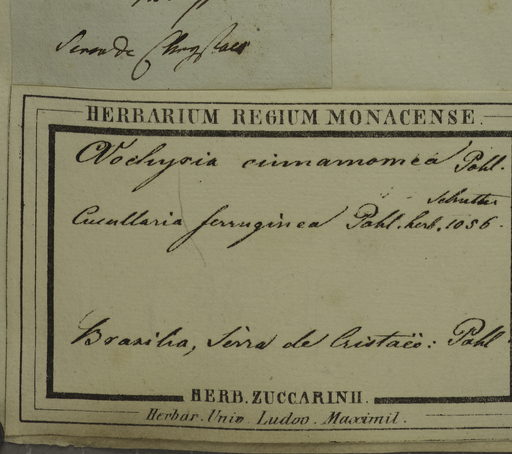 Serra de Chrystaes
HERBARIUM REGIUM MONACENSE.
Vochysia cinnamomea Pohl.
Schultes
Cucullaria ferruginea Pohl. herb. 1056.
Brasilia, Sèrra de Cristaës: Pohl
HERB. ZUCCARINII.
Herbar. Univ. Ludov. Maximil.